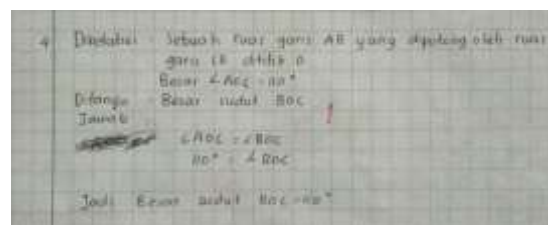 4 Diketahui : Sebuah ruas garis AB yang dipotong oleh ruas
garis di titik O
Besar ∠AOC = 110°
Ditanya : Besar sudut BOC
Jawab :
∠AOC = ∠BOC
110° = ∠BOC
Jadi Besar sudut BOC = 110°